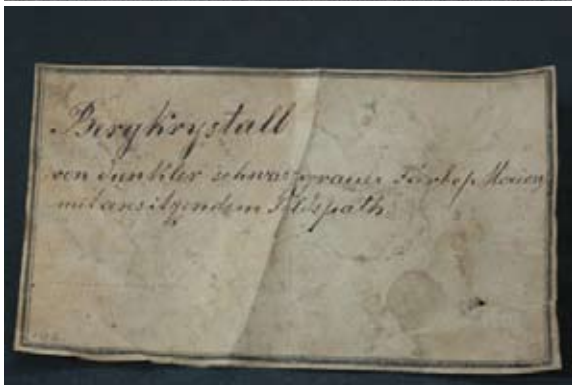 Bergkrystall
von dunkler schwarzgrauer Farbe, Morion,
mit ansitzendem Feldspath.